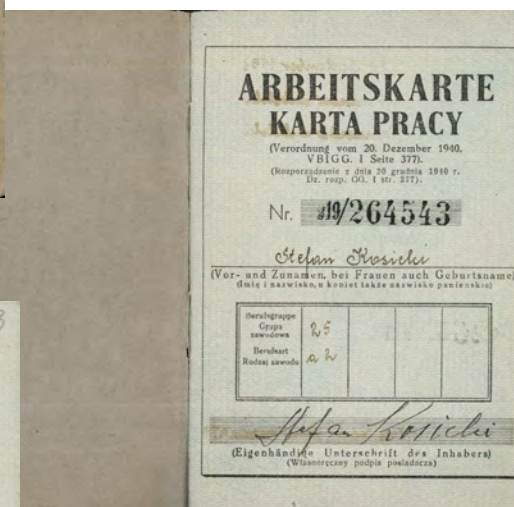 ARBEITSKARTE
KARTA PRACY
(Verordnung vom 20. Dezember 1940.
VBlGG. I Seite 377).
(Rozporządzenie z dnia 20 grudnia 1940 r.
Dz. rozp. GG. I str. 377).
Nr. 319/264543
Stefan Kosicki
(Vor- und Zunamen, bei Frauen auch Geburtsname)
(Imię i nazwisko, u kobiet także nazwisko panieńskie)
Berufsgruppe
Grupa
zawodowa
25
Berufsart
Rodzaj zawodu
a 2
Stefan Kosicki
(Eigenhändige Unterschrift des Inhabers)
(Własnoręczny podpis posiadacza)